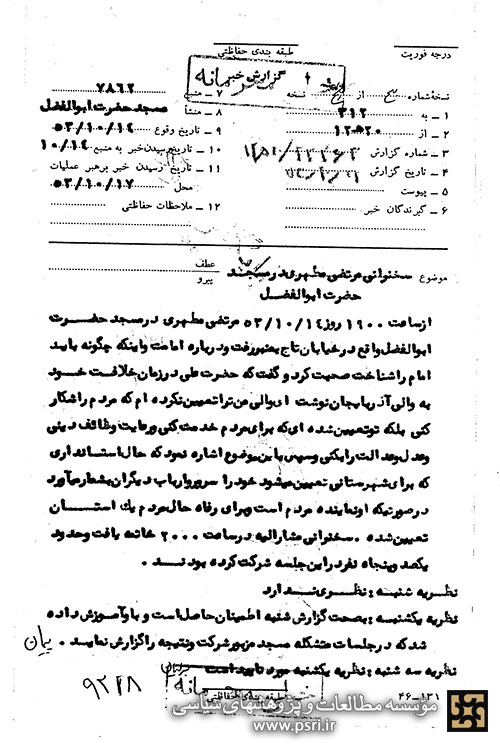 طبقه بندی حفاظتی
درجه فوریت
گزارش خبر
محرمانه
نسخه شماره پنج از پنج نسخه
۱ – به ۳۱۲
۲ – از ۱۲ﻫ۲۰
۳ – شماره گزارش
۴ – تاریخ گزارش
۵ – پیوست
۶ – گیرندگان خبر
۷ – منبع ۷۸۶۲
۸ – منشأ مسجد حضرت ابوالفضل
۹ – تاریخ وقوع ۵۳/۱۰/۱۴
۱۰ – تاریخ رسیدن خبر به منبع ۱۰/۱۴
۱۱ – تاریخ رسیدن خبر برهبر عملیات
محل ۵۳/۱۰/۱۷
۱۲ – ملاحظات حفاظتی
موضوع سخنرانی مرتضی مطهری در مسجد
حضرت ابوالفضل
عطف
پیرو
ازساعت ۱۹۰۰ روز ۵۳/۱۰/۱۴ مرتضی مطهری درمسجد حضرت
ابوالفضل واقع درخیابان تاج بمنبررفت ودرباره امامت واینکه چگونه باید
امام راشناخت صحبت کرد و گفت که حضرت علی درزمان خلافت خود
به والی آذربایجان نوشت ای والی من تراتعیین نکرده ام که مردم راشکار
کنی بلکه توتعیین شده ای که برای مردم خدمت کنی ورعایت وظائف دینی
وعدل وعدالت رابکنی وسپس باین موضوع اشاره نمود که حال استانداری
که برای شهرستانی تعیین میشود خود را سرور وارباب دیگران بشمار میآورد
درصورتیکه اونماینده مردم است وبرای رفاه حال مردم یك استان
تعیین شده . سخنرانی مشارالیه درساعت ۲۰۰۰ خاتمه یافت وحدود
یکصد وپنجاه نفر دراین جلسه شرکت کرده بودند .
نظریه شنبه : نظری ندارد
نظریه یکشنبه : بصحت گزارش شنبه اطمینان حاصل است و باوآموزش داده
شد که درجلسات متشکله مسجد مزبور شرکت ونتیجه راگزارش نماید .
نظریه سه شنبه : نظریه یکشنبه مورد تایید است
۹۲۲۸
محرمانه
طبقه بندی حفاظتی
۴۶-۱۳۱
موسسه مطالعات و پژوهشهای سیاسی
www.psri.ir